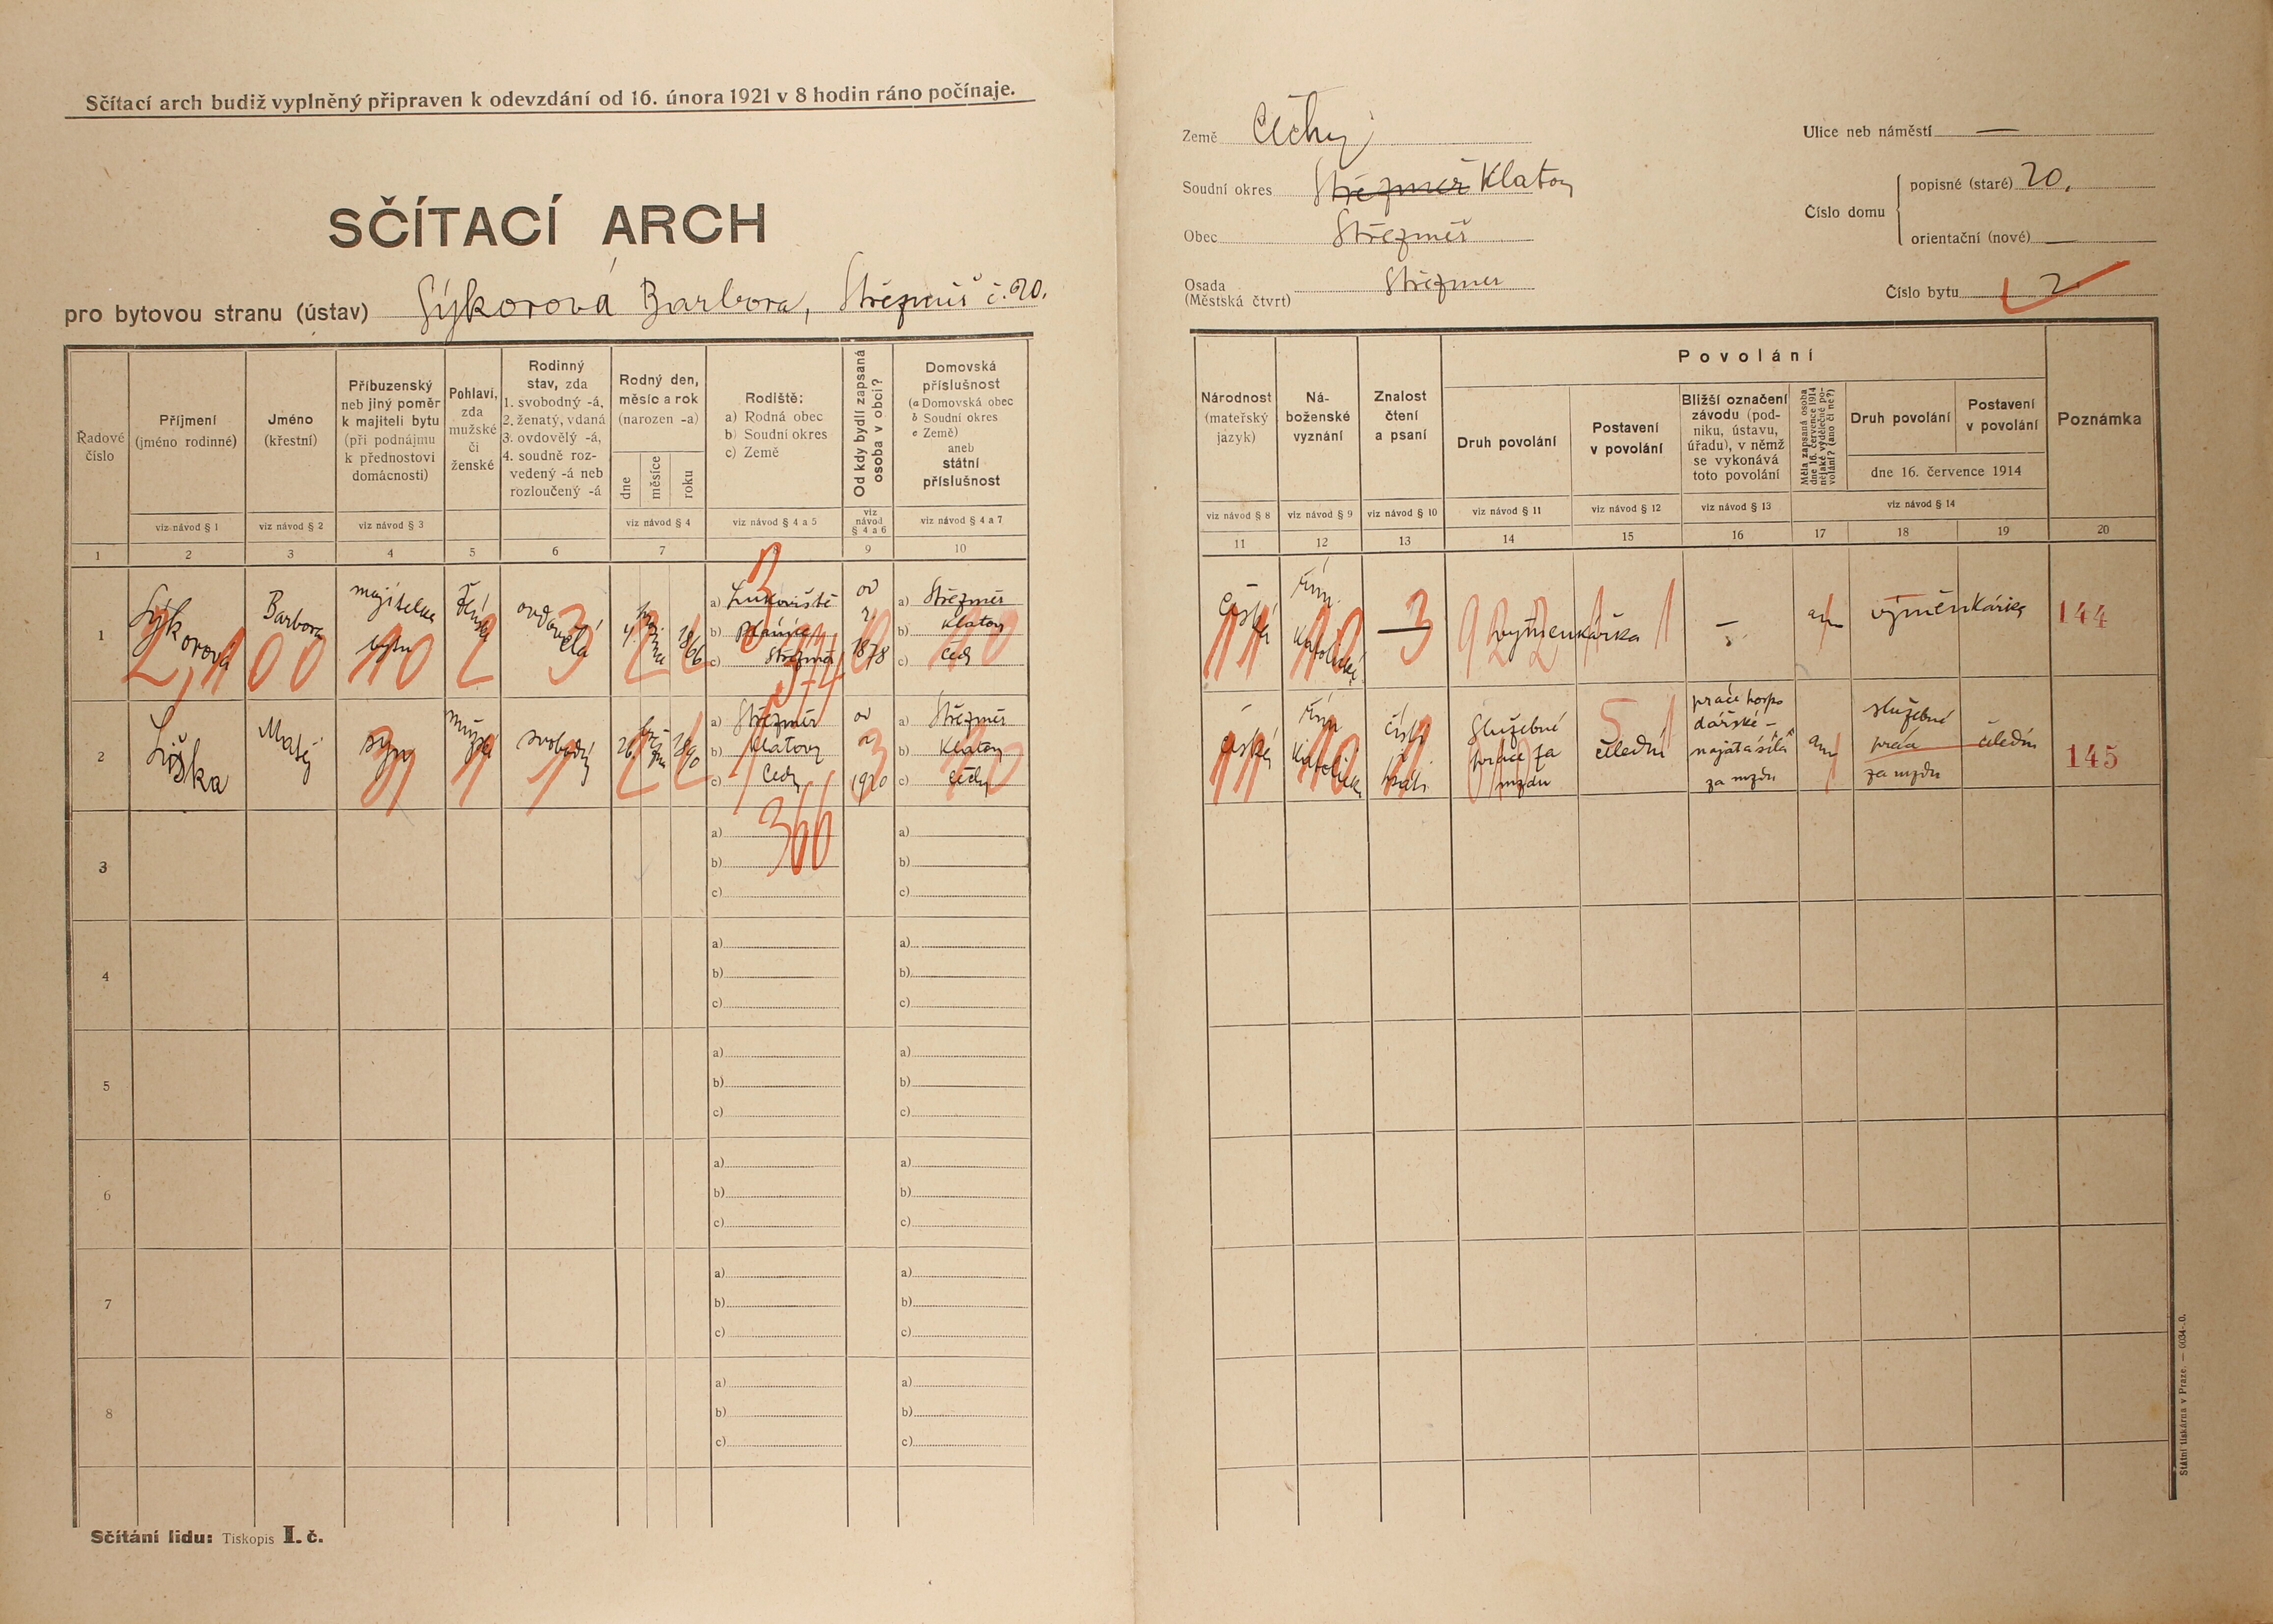 Sčítací arch budiž vyplněný připraven k odevzdání od 16. února 1921 v 8 hodin ráno počínaje.
SČÍTACÍ ARCH
pro bytovou stranu (ústav) Sýkorová Barbora, Střezměř č. 20.
Řadové číslo
Příjmení
(jméno rodinné)
Jméno
(křestní)
Příbuzenský
neb jiný poměr
k majiteli bytu
(při podnájmu
k přednostovi
domácnosti)
Pohlaví,
zda
mužské
či
ženské
Rodinný
stav, zda
1. svobodný -á,
2. ženatý, vdaná
3. ovdovělý -á,
4. soudně roz-
vedený -á neb
rozloučený -á
Rodný den,
měsíc a rok
(narozen -a)
dne
měsíce
roku
Rodiště:
a) Rodná obec
b) Soudní okres
c) Země
Od kdy bydlí zapsaná
osoba v obci?
Domovská
příslušnost
(a Domovská obec
b Soudní okres
c Země)
aneb
státní
příslušnost
viz návod § 1
viz návod § 2
viz návod § 3
viz návod § 4
viz návod § 4 a 5
viz
návod
§ 4 a 6
viz návod § 4 a 7
1 2 3 4 5 6 7 8 9 10
1
Sýkorová
Barbora
majitelka
bytu
žensk
ovdovělá
4.
1866
a) Lukoviště
b) Plánice
c) Střezměř
od
r
1878
a) Střezměř
b) Klatovy
c) Čechy
2,100 10 2 3 2 2
3
574
10
2
Liška
Matěj
syn
mužské
svobodný
26.
1890
a) Střezměř
b) Klatovy
c) Čechy
od
r
1920
a) Střezměř
b) Klatovy
c) Čechy
31 1 1 2 2 1 3 10
366
3
a)
b)
c)
a)
b)
c)
4
a)
b)
c)
a)
b)
c)
5
a)
b)
c)
a)
b)
c)
6
a)
b)
c)
a)
b)
c)
7
a)
b)
c)
a)
b)
c)
8
a)
b)
c)
a)
b)
c)
Sčítání lidu: Tiskopis I. č.
Země Čechy
Soudní okres Střezměř Klatovy
Obec Střezměř
Osada
(Městská čtvrt) Střezměř
Ulice neb náměstí —
Číslo domu
popisné (staré) 20.
orientační (nové) —
Číslo bytu 2
Národnost
(mateřský
jazyk)
Ná-
boženské
vyznání
Znalost
čtení
a psaní
Povolání
Druh povolání
Postavení
v povolání
Bližší označení
závodu (pod-
niku, ústavu,
úřadu), v němž
se vykonává
toto povolání
Měla zapsaná osoba
dne 16. července 1914
nějaké výdělečné po-
volání? (ano či ne?)
Druh povolání
Postavení
v povolání
dne 16. července 1914
Poznámka
viz návod § 8
viz návod § 9
viz návod § 10
viz návod § 11
viz návod § 12
viz návod § 13
viz návod § 14
11 12 13 14 15 16 17 18 19 20
česká
řím.
katolické
—
výměnkářka
—
ano
výměnkářka
144
11 10 3 922 1 1
česká
řím.
katolické
čísti
psáti
služebné
práce za
mzdu
čelední
práce hospo
dářské –
najatá síla
za mzdu
ano
služebné
práce
za mzdu
čelední
145
11 10 51
Státní tiskárna v Praze. — 6034-.0.